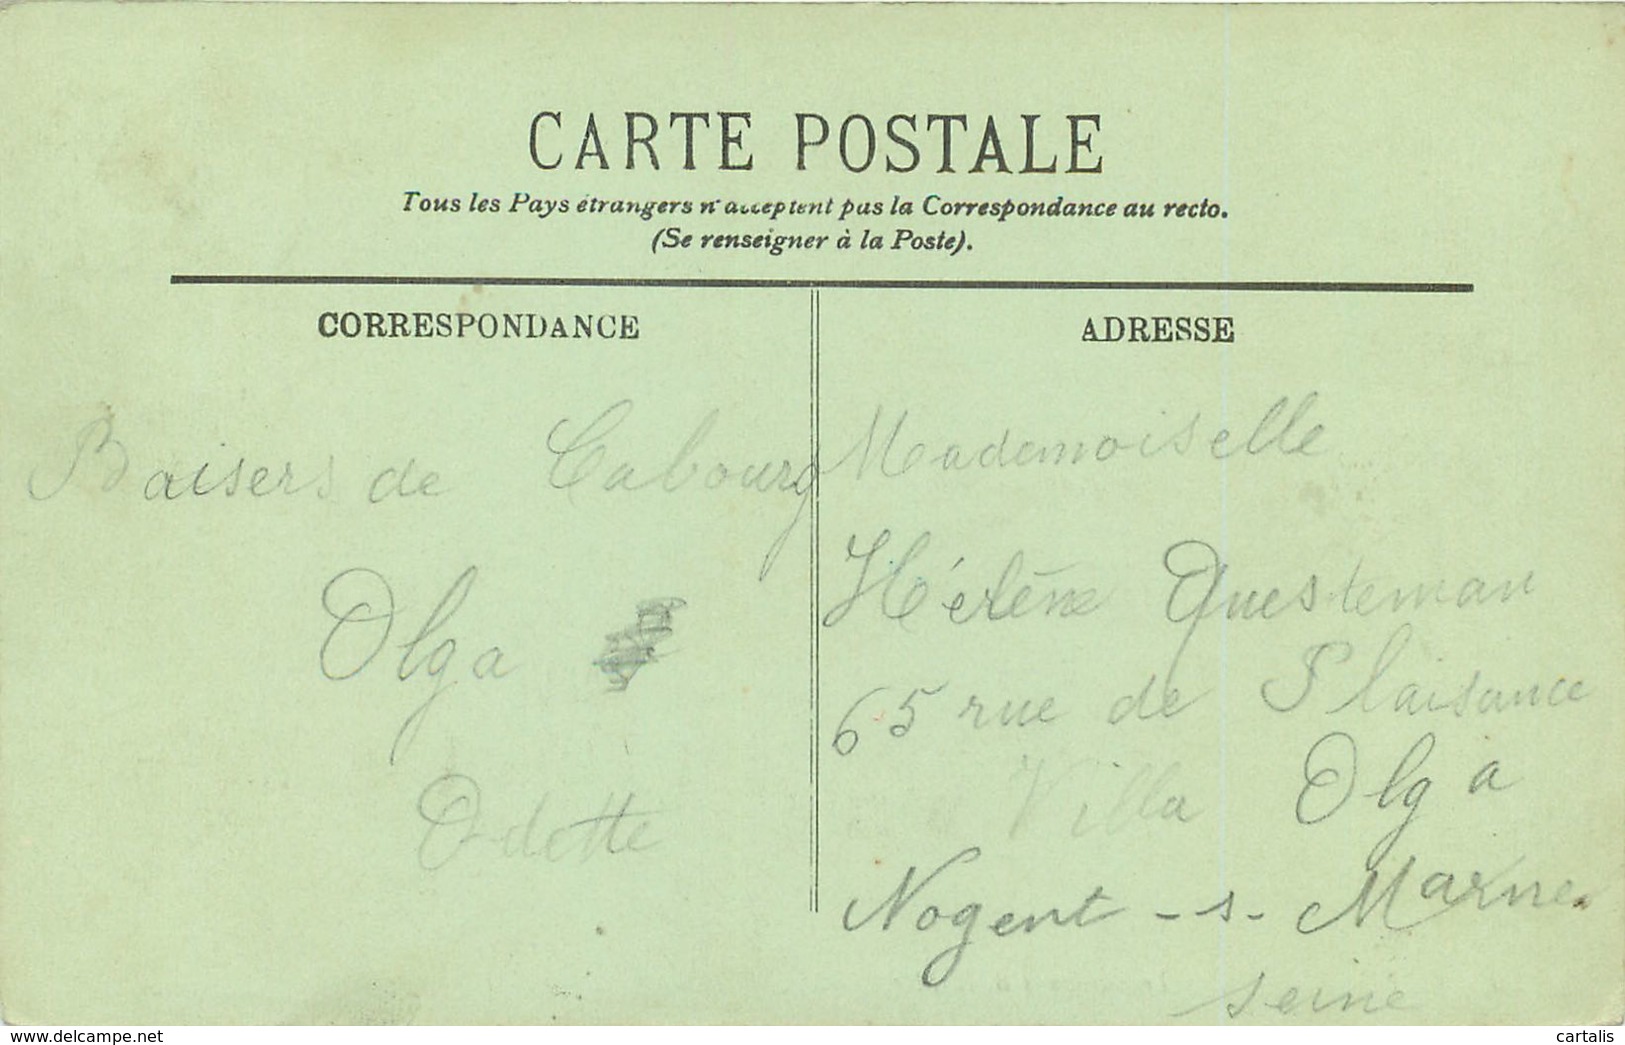 CARTE POSTALE
Tous les Pays étrangers n'acceptent pas la Correspondance au recto.
(Se renseigner à la Poste).
CORRESPONDANCE
Baisers de Cabourg
Olga
Odette
ADRESSE
Mademoiselle
Hélène Questeman
65 rue de Plaisance
Villa Olga
Nogent-s-Marne
seine
www.delcampe.net
cartalis